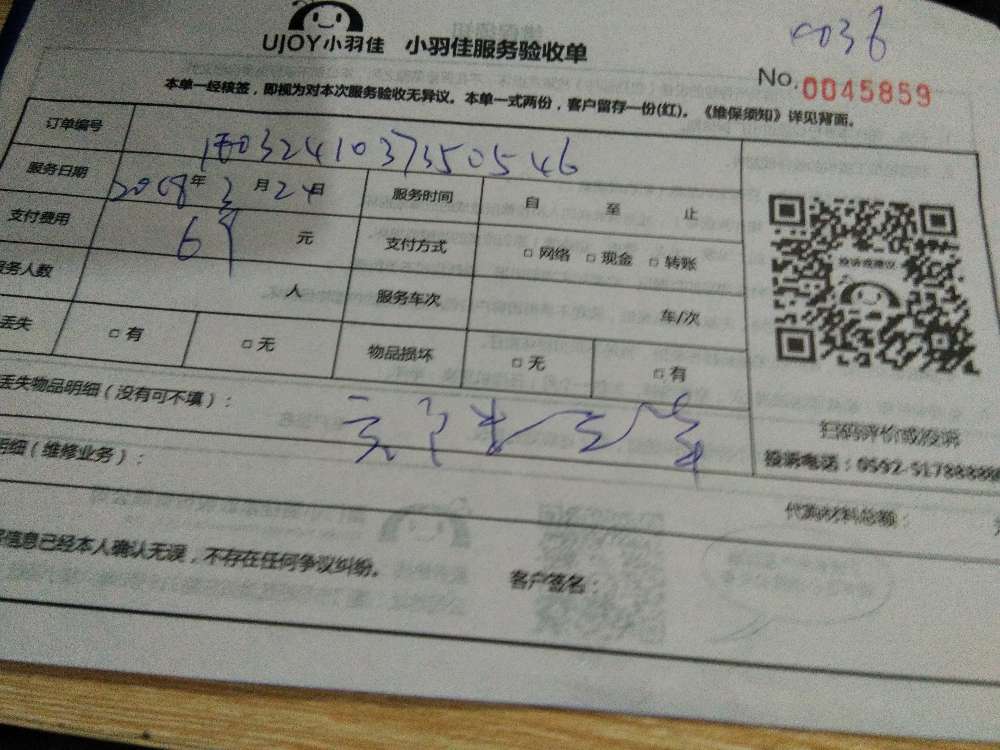 UJOY小羽佳 小羽佳服务验收单
0036
No. 0045859
本单一经核签，即视为对本次服务验收无异议。本单一式两份，客户留存一份(红)。《维保须知》详见背面。
订单编号 1803241037350546
服务日期 2018年3月24日 服务时间 自 至 止
支付费用 元 支付方式 □ 网络 □ 现金 □ 转账
服务人数 人 服务车次 车/次
丢失 □ 有 □ 无 物品损坏 □ 无 □ 有
投诉或建议
丢失物品明细（没有可不填）：
扫码评价或投诉
明细（维修业务）：
投诉电话：0592-5178888
代购材料总额：
信息已经本人确认无误，不存在任何争议纠纷。 客户签名：